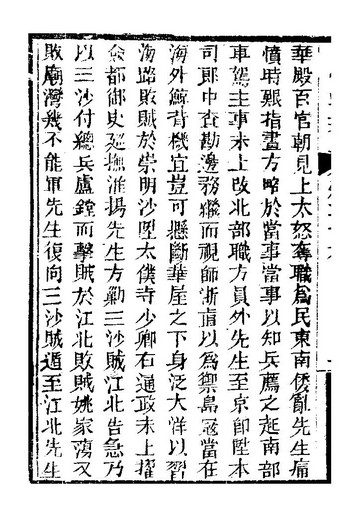 華殿百官朝見上太怒奪職為民東南倭亂先生痛
憤時艱指畫方略於當事當事以知兵薦之起南部
車駕主事未上改北部職方員外先生至京師陞本
司郎中查勘邊務繼而視師浙直以為禦島寇當在
海外鯨背機宜豈可懸斷華屋之下身泛大洋以習
海路敗賊於崇明沙陞太僕寺少卿右通政未上擢
僉都御史巡撫淮揚先生方勦三沙賊江北告急乃
以三沙付總兵盧鏜而擊賊於江北敗賊姚家蕩又
敗廟灣幾不能軍先生復向三沙賊遁至江北先生